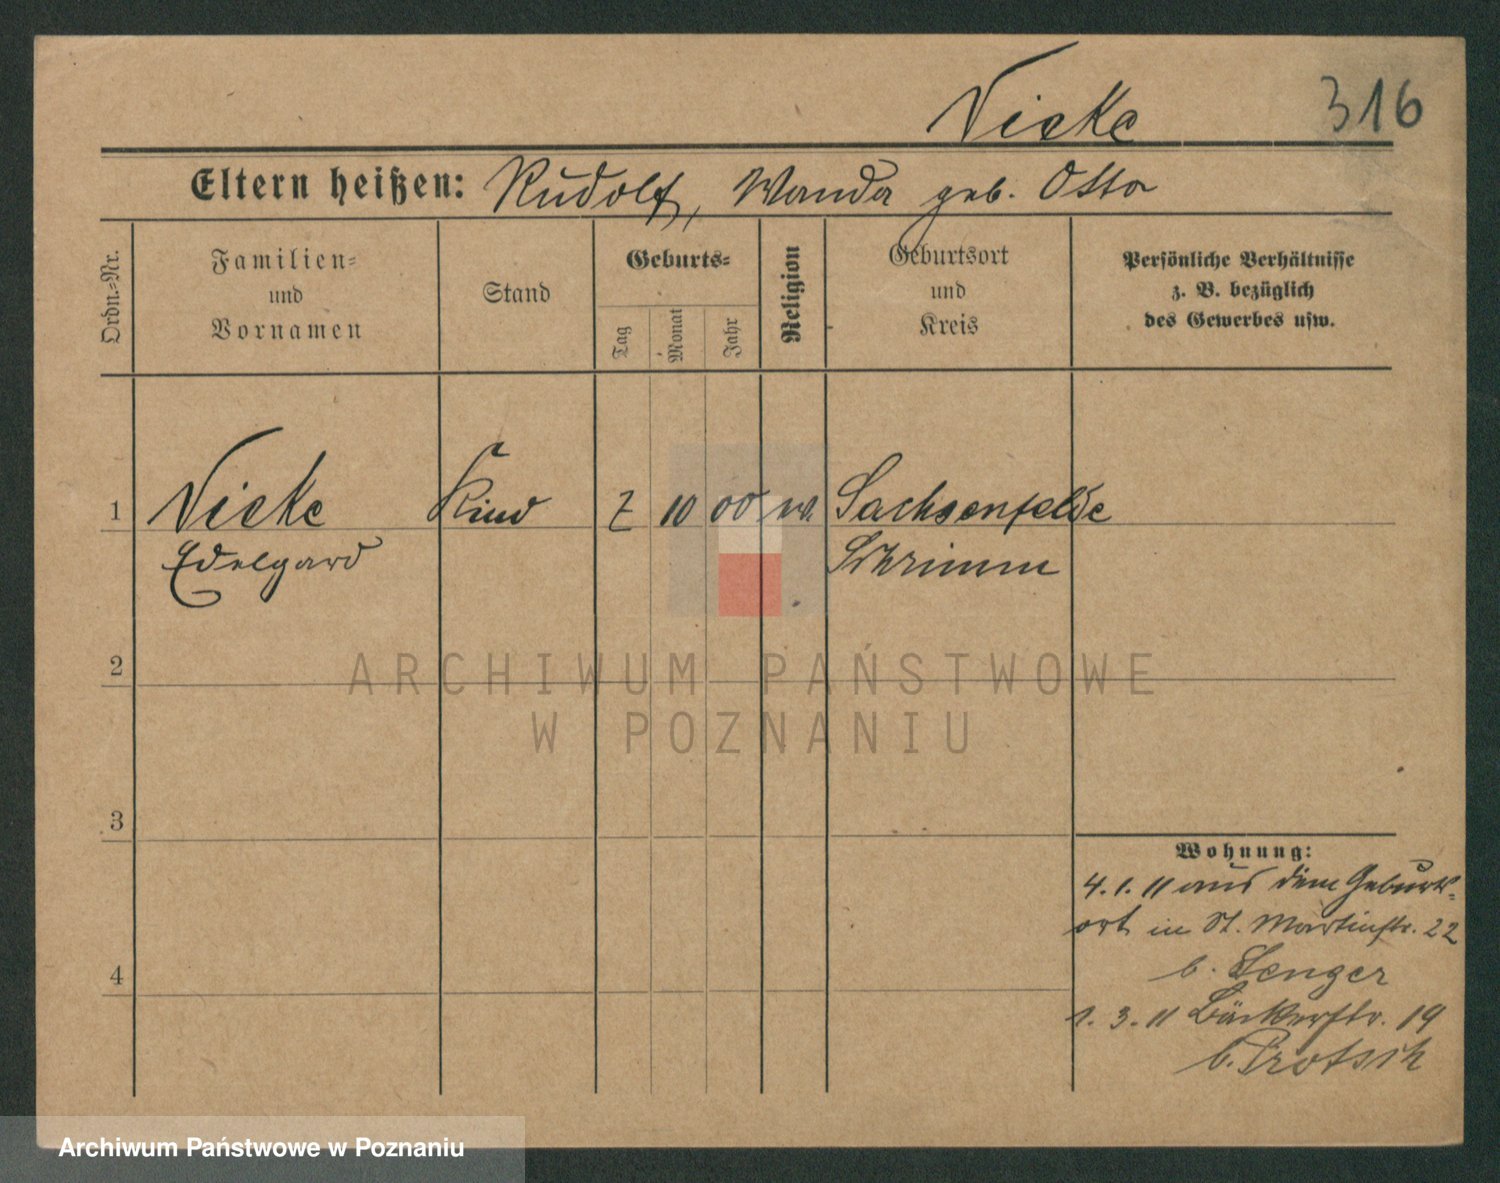 Nicke 316
Eltern heißen: Rudolf, Wanda geb. Otto
Ordn.-Nr.
Familien-
und
Vornamen
Stand
Geburts-
Tag
Monat
Jahr
Religion
Geburtsort
und
Kreis
Persönliche Verhältnisse
z. B. bezüglich
des Gewerbes usw.
1 Nicke Kind 2 10 00 Sachsenfelde
Edelgard Schrimm
2
ARCHIWUM PAŃSTWOWE
W POZNANIU
3
Wohnung:
4.1.11 aus dem Geburts-
ort in St. Martinstr. 22
4 b. Senger
1.3.11 Bäckerstr. 19
b. Protsch
Archiwum Państwowe w Poznaniu